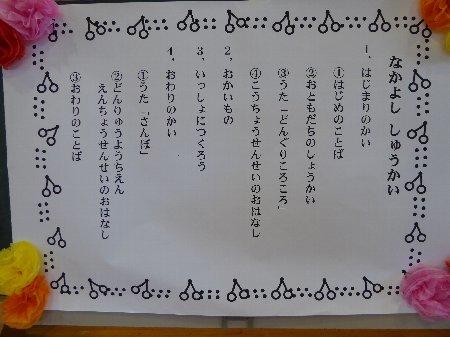 なかよし しゅうかい
1、はじまりのかい
①はじめのことば
②おともだちのしょうかい
③うた「どんぐりころころ」
④こうちょうせんせいのおはなし
2、おかいもの
3、いっしょにつくろう
4、おわりのかい
①うた「さんぽ」
②どんりゅうようちえん
えんちょうせんせいのおはなし
③おわりのことば